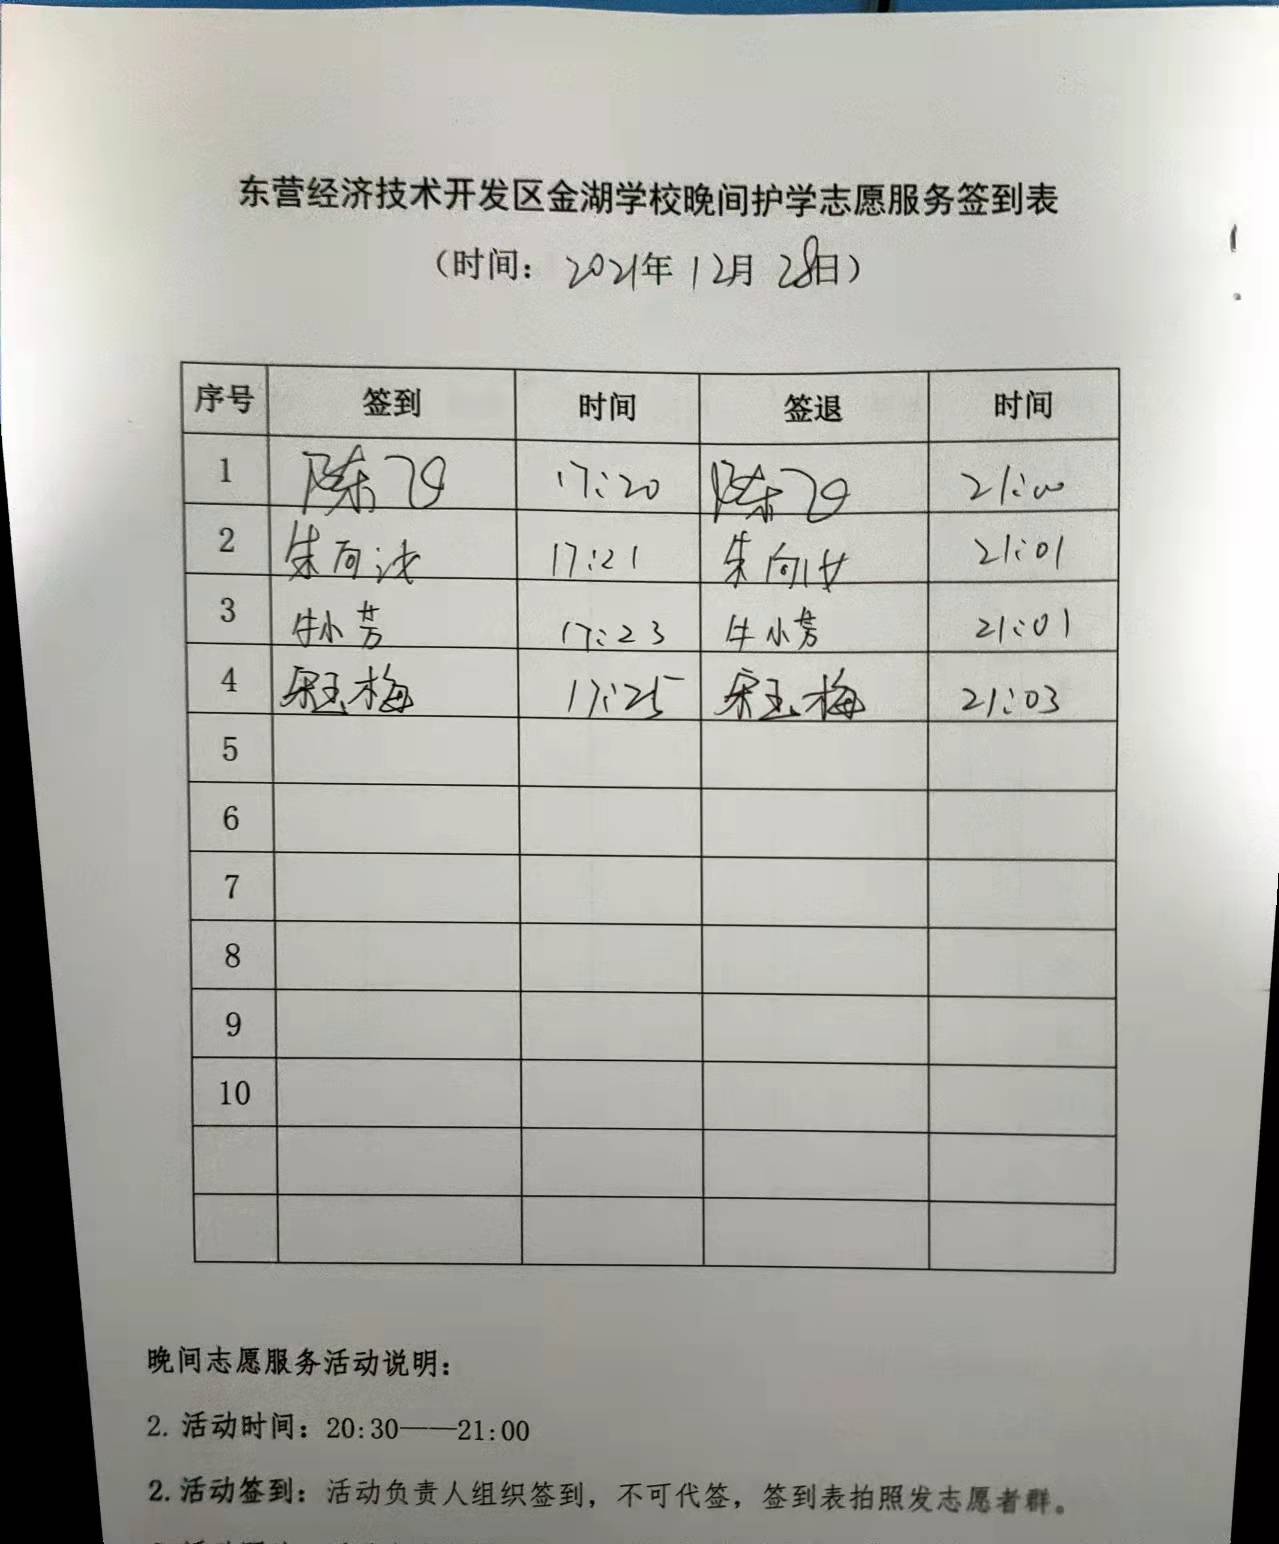 东营经济技术开发区金湖学校晚间护学志愿服务签到表
（时间：2021年12月28日）
序号 签到 时间 签退 时间
1 陈 17:20 陈 21:00
2 朱向 17:21 朱向 21:01
3 牛小芳 17:23 牛小芳 21:01
4 宋玉梅 17:25 宋玉梅 21:03
5
6
7
8
9
10
晚间志愿服务活动说明：
2. 活动时间：20:30——21:00
2. 活动签到：活动负责人组织签到，不可代签，签到表拍照发志愿者群。